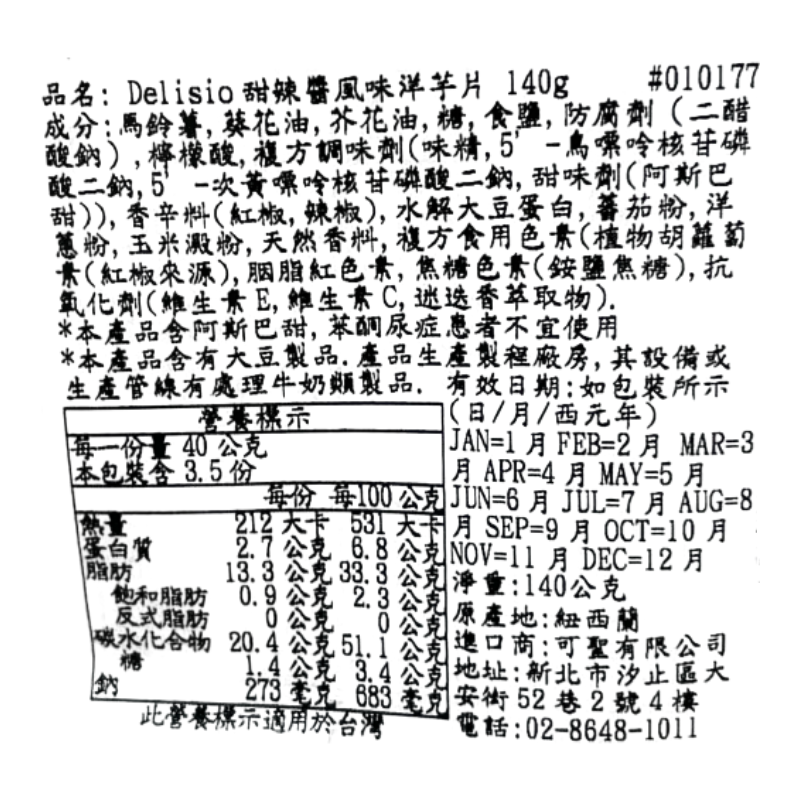 品名: Delisio 甜辣醬風味洋芋片 140g #010177
成分:馬鈴薯, 葵花油, 芥花油, 糖, 食鹽, 防腐劑 (二醋
酸鈉), 檸檬酸, 複方調味劑(味精, 5' -鳥嘌呤核苷磷
酸二鈉, 5' -次黃嘌呤核苷磷酸二鈉, 甜味劑(阿斯巴
甜)), 香辛料(紅椒, 辣椒), 水解大豆蛋白, 蕃茄粉, 洋
蔥粉, 玉米澱粉, 天然香料, 複方食用色素(植物胡蘿蔔
素(紅椒來源), 胭脂紅色素, 焦糖色素(銨鹽焦糖), 抗
氧化劑(維生素 E, 維生素 C, 迷迭香萃取物).
*本產品含阿斯巴甜, 苯酮尿症患者不宜使用
*本產品含有大豆製品. 產品生產製程廠房, 其設備或
生產管線有處理牛奶類製品. 有效日期:如包裝所示
(日/月/西元年)
JAN=1 月 FEB=2 月 MAR=3
月 APR=4 月 MAY=5 月
JUN=6 月 JUL=7 月 AUG=8
月 SEP=9 月 OCT=10 月
NOV=11 月 DEC=12 月
淨重:140公克
原產地:紐西蘭
進口商:可聖有限公司
地址:新北市汐止區大
安街 52 巷 2 號 4 樓
電話:02-8648-1011
營養標示
每一份量 40 公克
本包裝含 3.5 份
每份 每100 公克
熱量 212 大卡 531 大卡
蛋白質 2.7 公克 6.8 公克
脂肪 13.3 公克 33.3 公克
飽和脂肪 0.9 公克 2.3 公克
反式脂肪 0 公克 0 公克
碳水化合物 20.4 公克 51.1 公克
糖 1.4 公克 3.4 公克
鈉 273 毫克 683 毫克
此營養標示適用於台灣